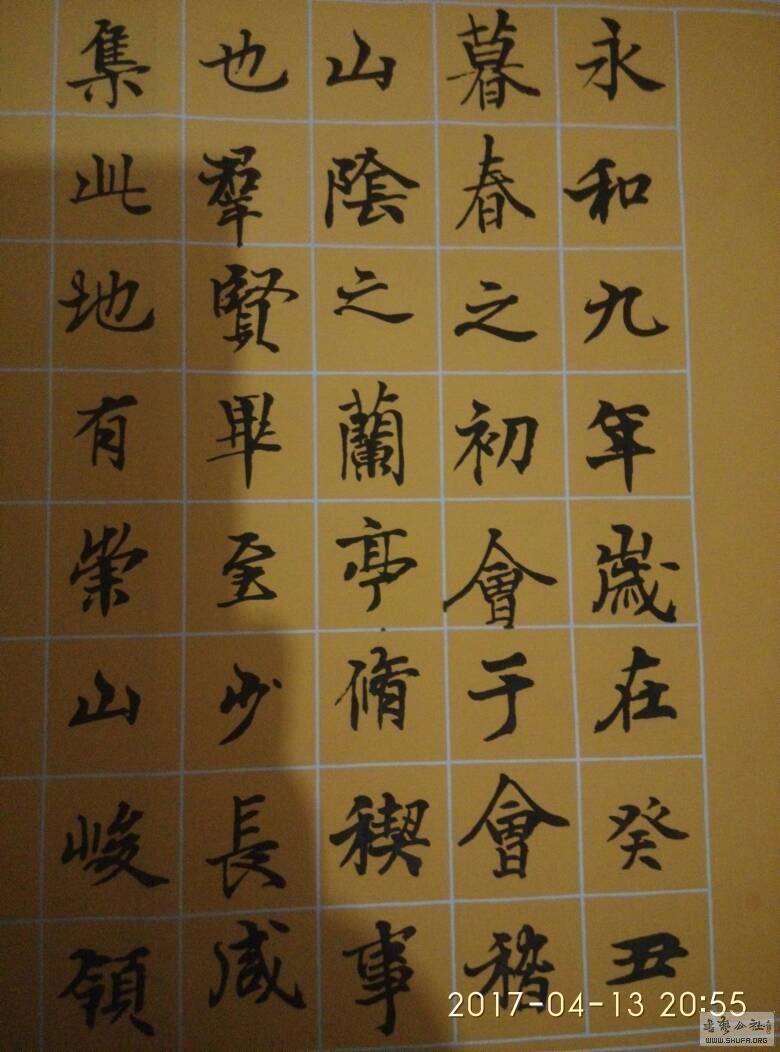 永和九年歲在癸丑
暮春之初會于會稽
山陰之蘭亭脩稧事
也羣賢畢至少長咸
集此地有崇山峻領
2017-04-13 20:55
书艺公社
WWW.SHUFA.ORG